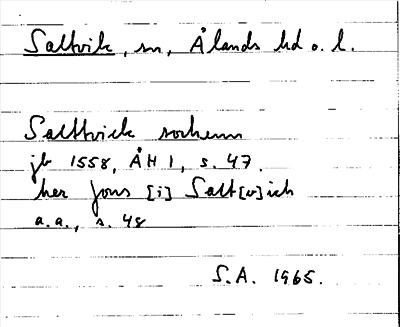 Saltvik, sn, Ålands hd o. l.
Salttvick sochenn
jb 1558, ÅH 1, s. 47.
her Jons [i] Salt[v]ich
a.a., s. 48
S.A. 1965.